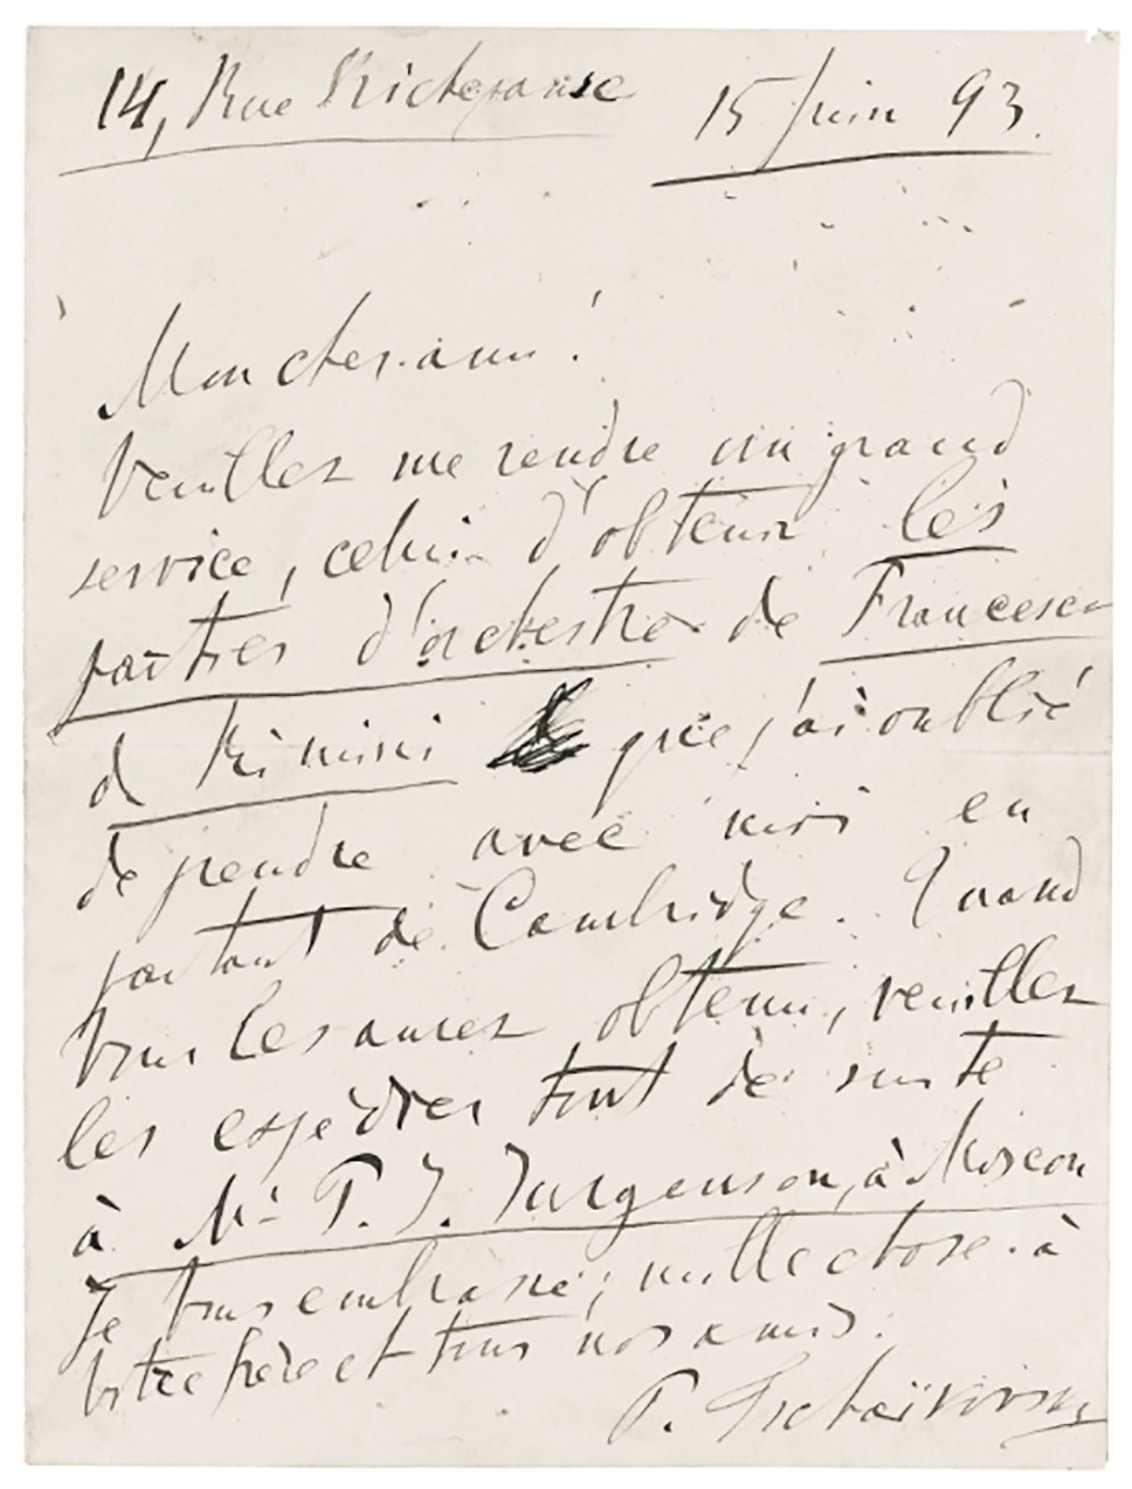 14, Rue Richepanse 15 Juin 93.
Mon cher ami!
Veuillez me rendre un grand
service, celui d'obtenir les
parties d'orchestre de Francesca
d Rimini que j'ai oublié
de prendre avec moi en
partant de Cambridge. Quand
Vous les aurez obtenu, veuillez
les expédier tout de suite
à Mr P. J. Jurgenson, à Moscou
Je Vous embrasse; mille chose à
Votre frère et tous nos amis.
P. Tschaïkovsky